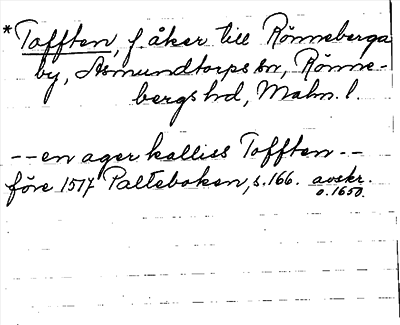 *Tofften, f. åker till Rönneberga
by, Asmundtorps sn, Rönne-
bergs hd, Malm. l.
-- en ager kallies Tofften --
före 1517 Palteboken, s. 166. avskr.
o. 1650.